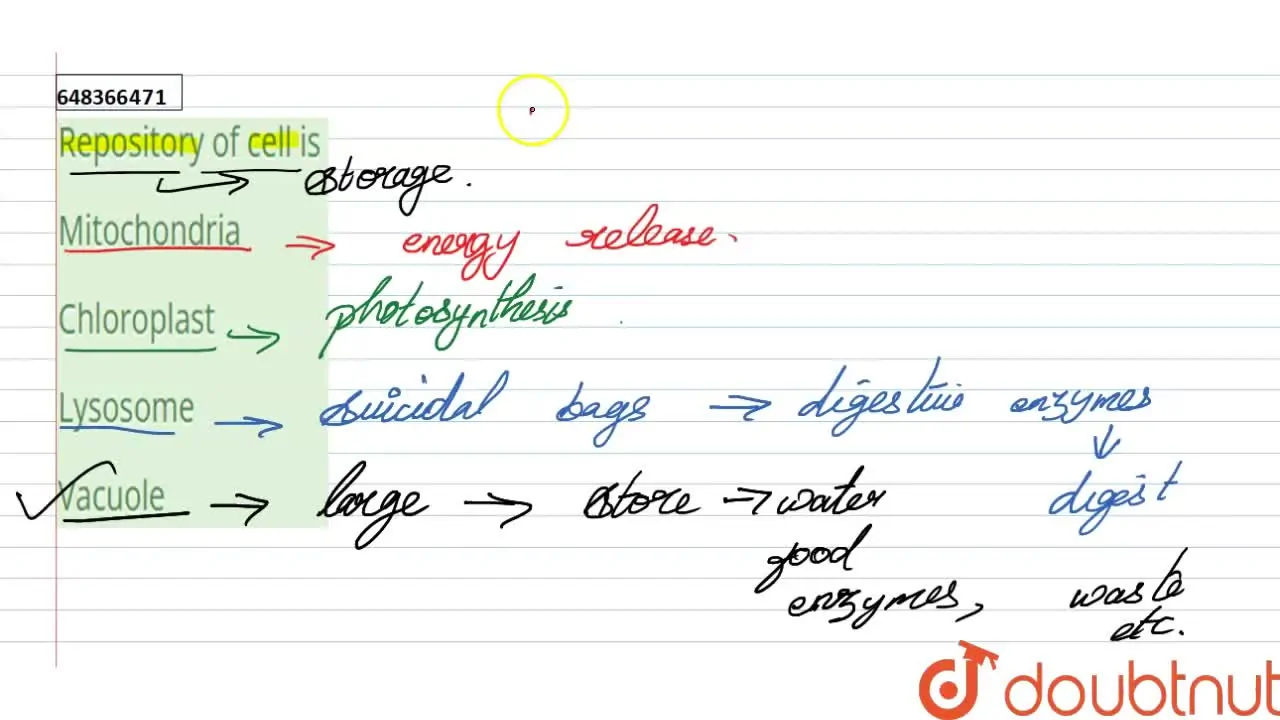 648366471
Repository of cell is
storage.
Mitochondria → energy release.
Chloroplast → photosynthesis
Lysosome → suicidal bags → digestive enzymes
↓
Vacuole → large → store → water digest
food
enzymes, waste
etc.
doubtnut